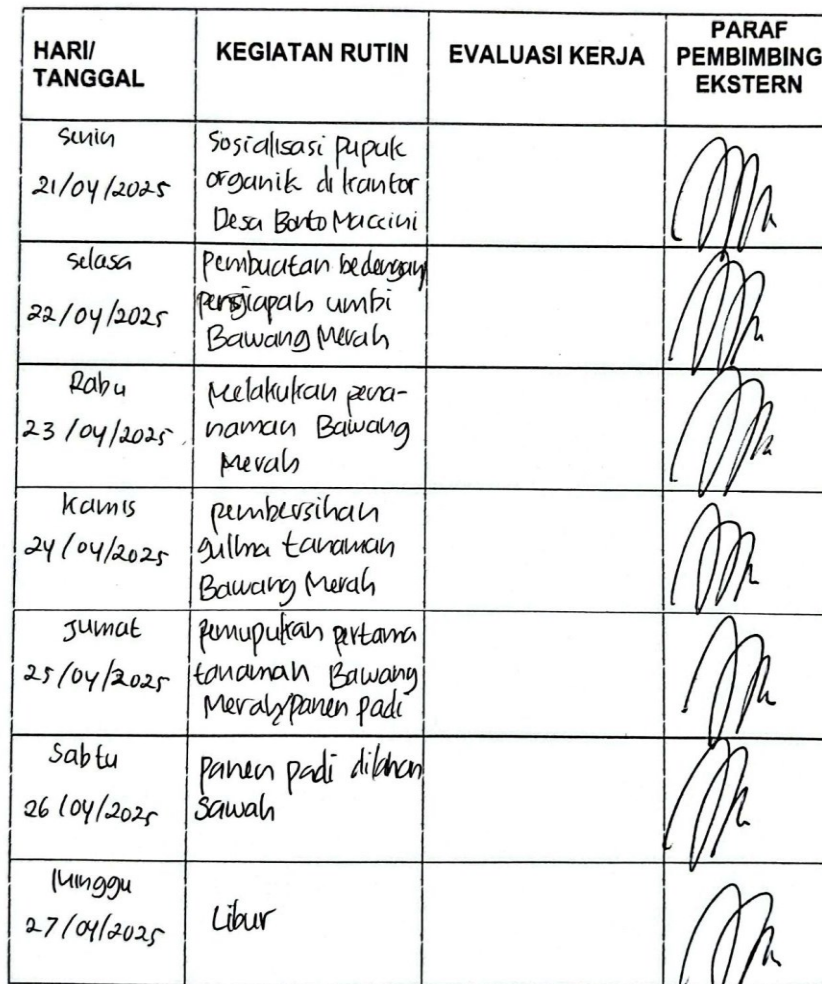 HARI/
TANGGAL
KEGIATAN RUTIN
EVALUASI KERJA
PARAF
PEMBIMBING
EKSTERN
Senin
21/04/2025
Sosialisasi pupuk
organik di kantor
Desa Bonto Maccini
Selasa
22/04/2025
pembuatan bedengan
persiapan umbi
Bawang Merah
Rabu
23/04/2025
Melakukan pena-
naman Bawang
Merah
Kamis
24/04/2025
pembersihan
gulma tanaman
Bawang Merah
Jumat
25/04/2025
pemupukan pertama
tanaman Bawang
Merah/panen padi
Sabtu
26/04/2025
panen padi dilahan
sawah
Minggu
27/04/2025
Libur